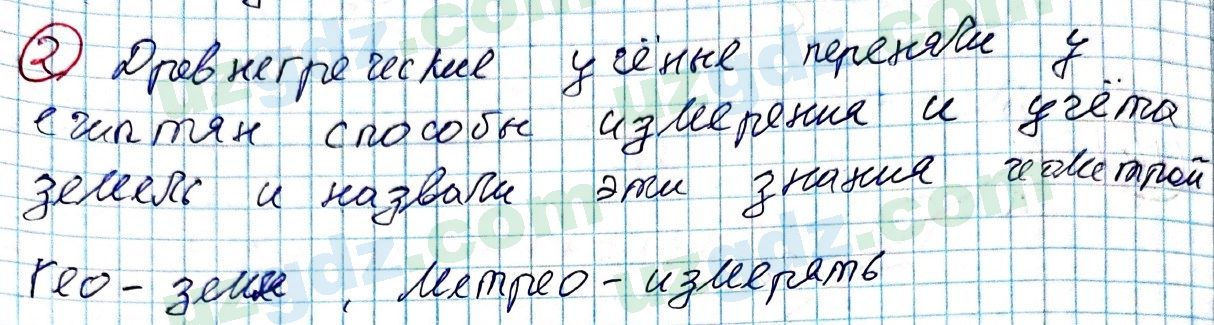 2 Древнегреческие учённые переняли у
египтян способы измерения и учёта
земель и назвали эти знания геометрой
Гео - земле, метрео - измерять
uzgdz.com